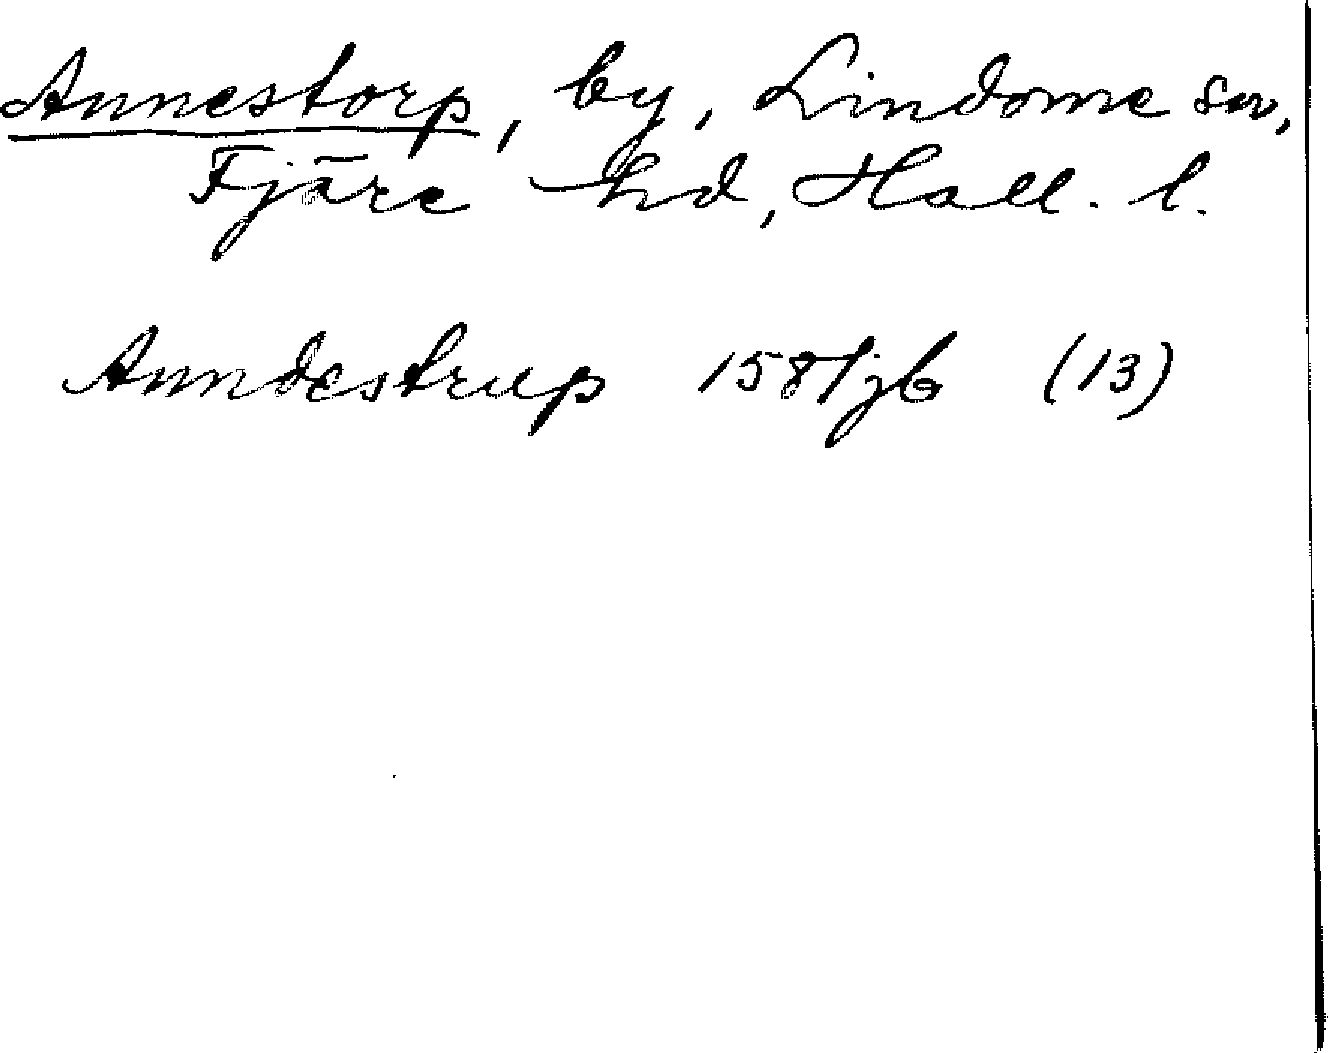 Annestorp, by, Lindome sn,
Fjäre hd, Hall. l.
Anndestrup 1581 jb (13)